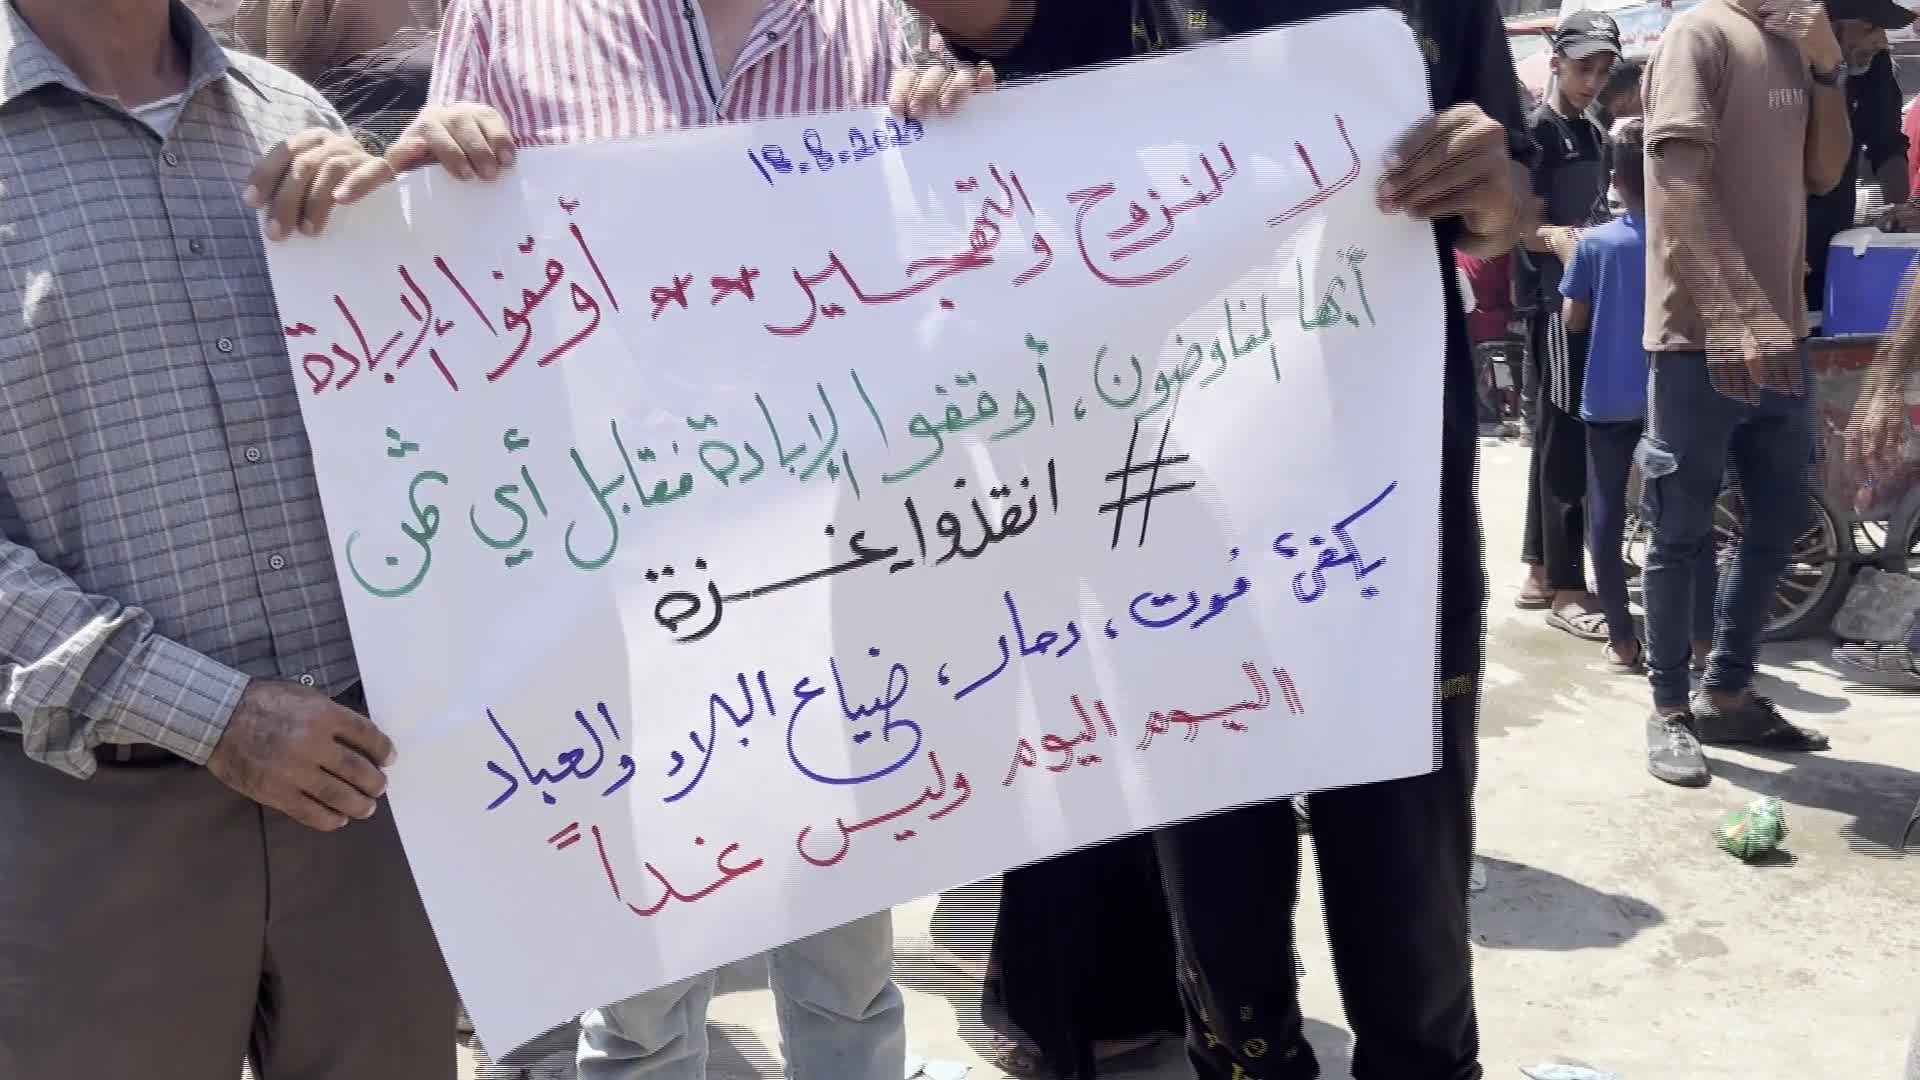 18.8.2025
لا للنزوح والتهجير ** أوقفوا الإبادة
أيها المفاوضون، أوقفوا الإبادة مقابل أي ثمن
# انقذوا غزة
يكفي موت، دمار، ضياع البلاد والعباد
اليوم اليوم وليس غداً